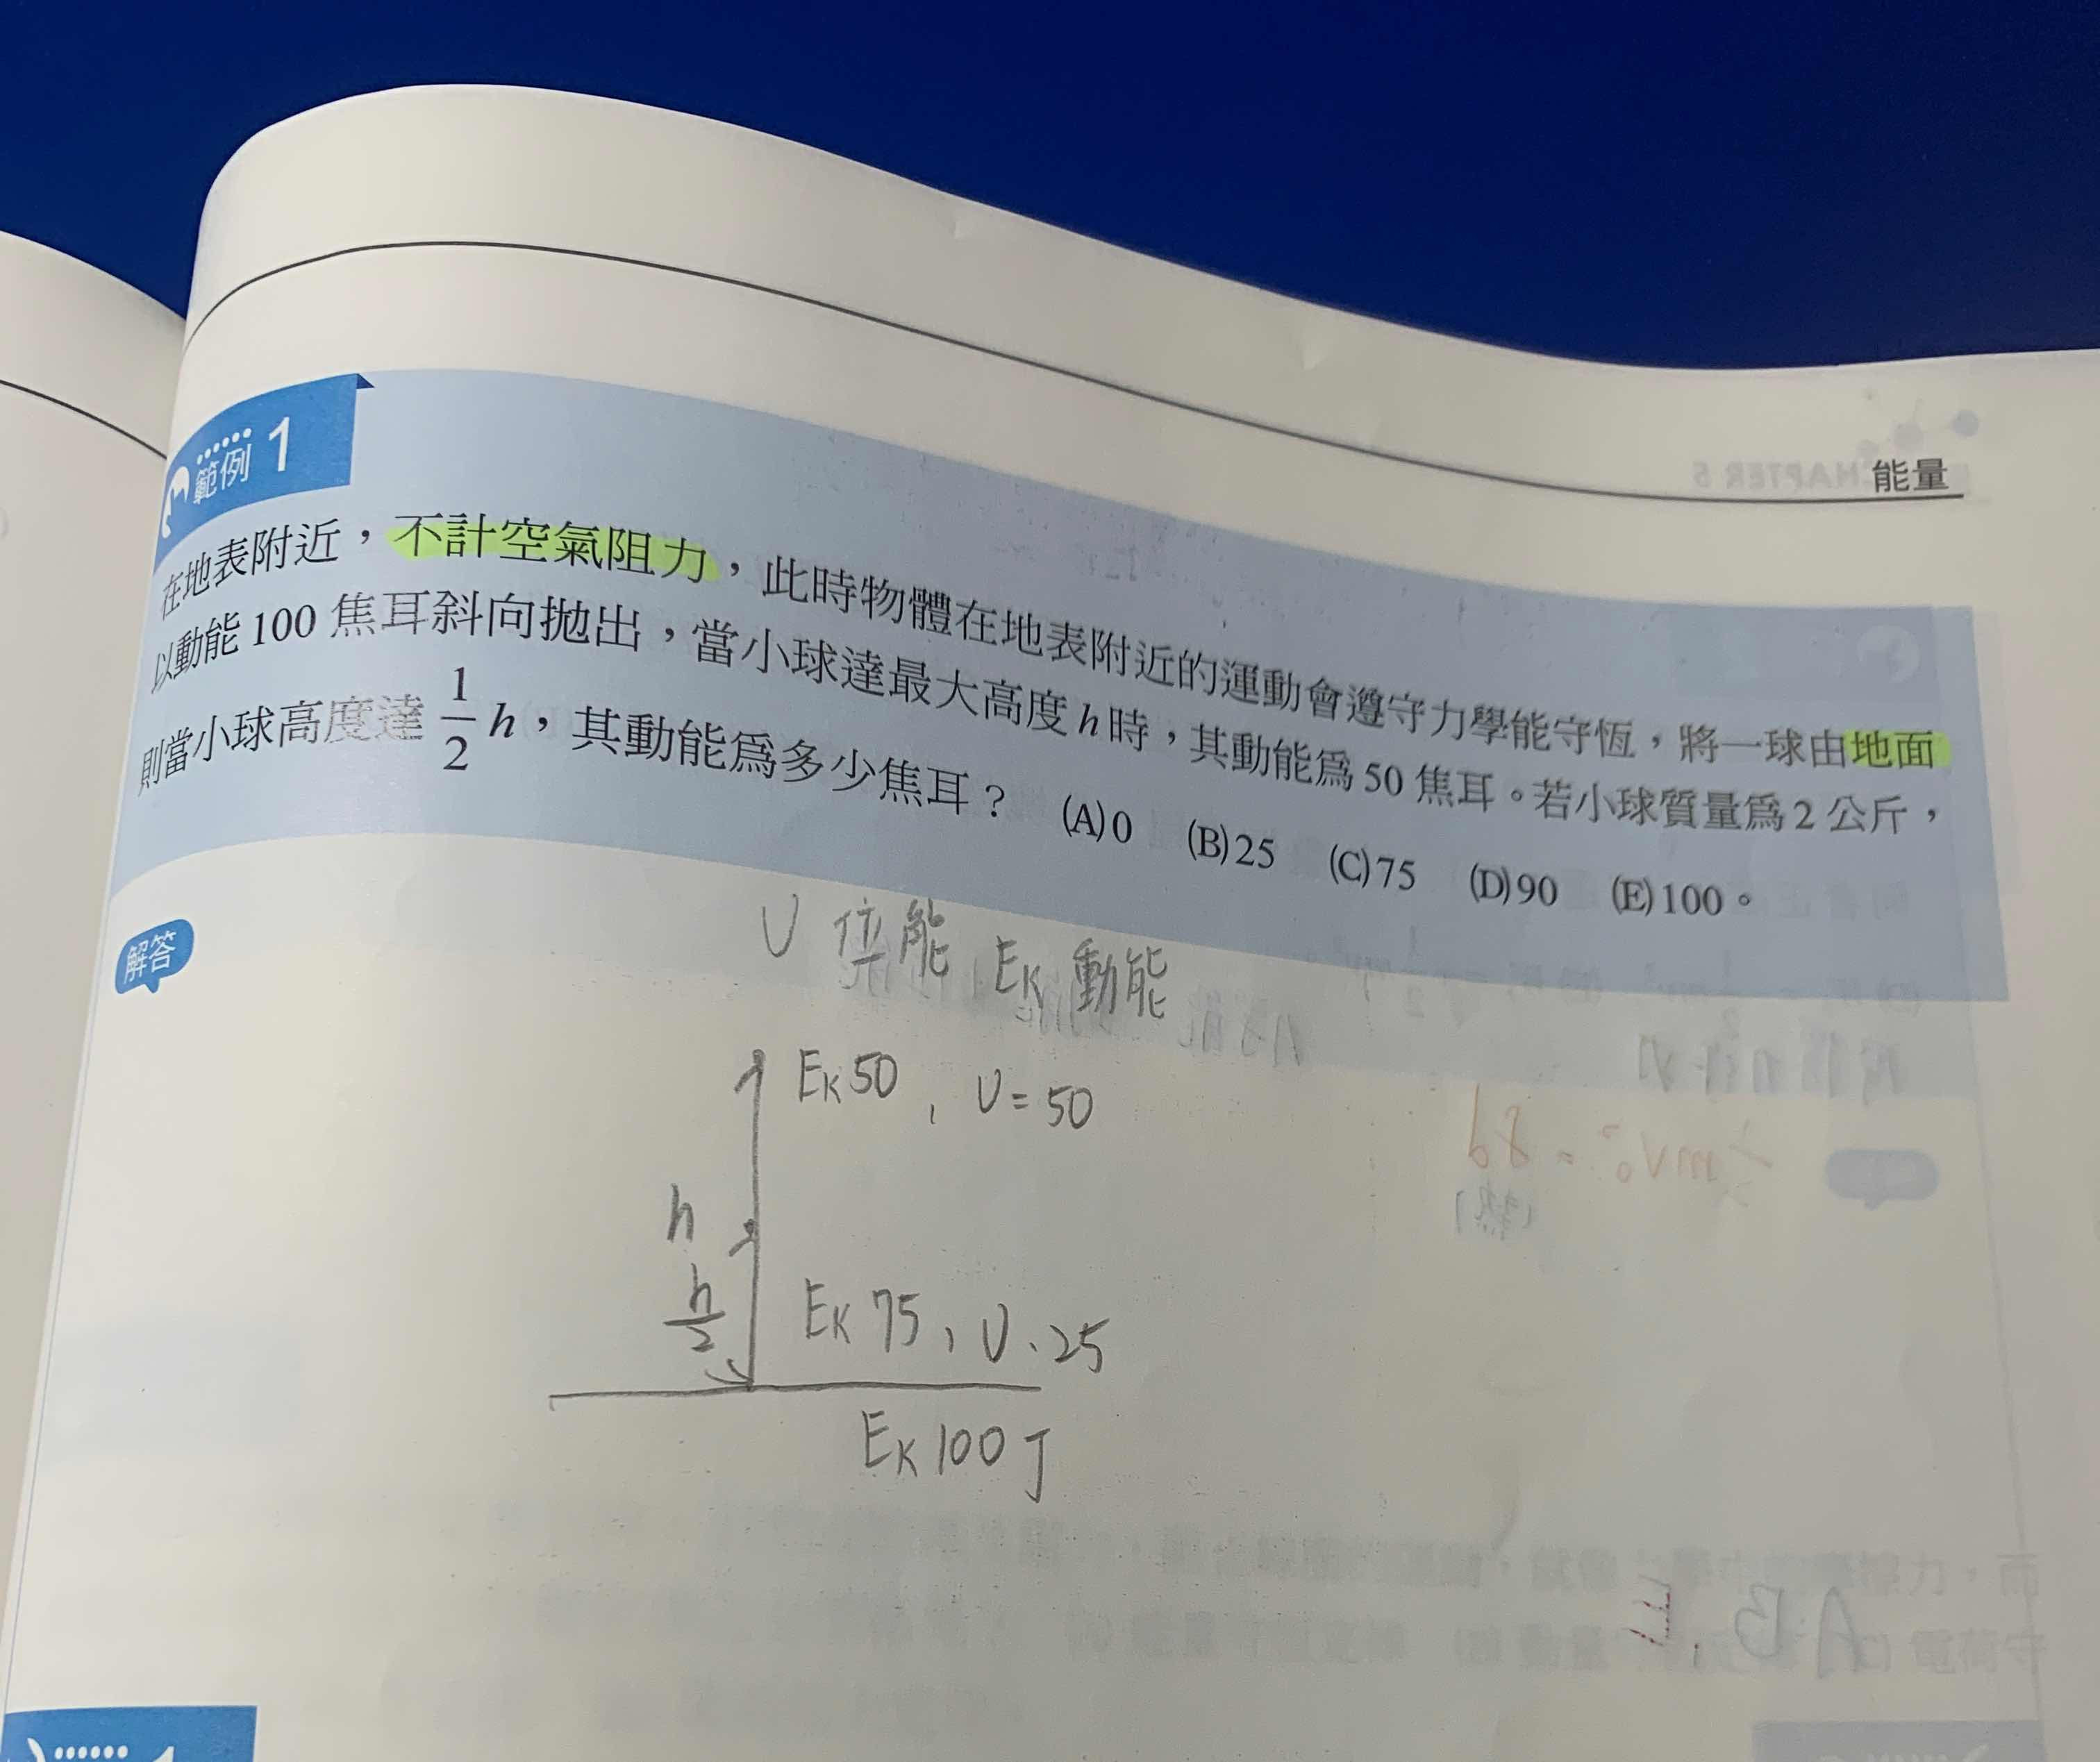 能量
範例 1
在地表附近，不計空氣阻力，此時物體在地表附近的運動會遵守力學能守恆，將一球由地面
以動能 100 焦耳斜向拋出，當小球達最大高度 h 時，其動能為 50 焦耳。若小球質量為 2 公斤，
則當小球高度達 1/2 h，其動能為多少焦耳？ (A)0 (B)25 (C)75 (D)90 (E)100。
解答
U 位能 EK 動能
EK 50, U = 50
h
h/2
EK 75, U、25
EK 100 J